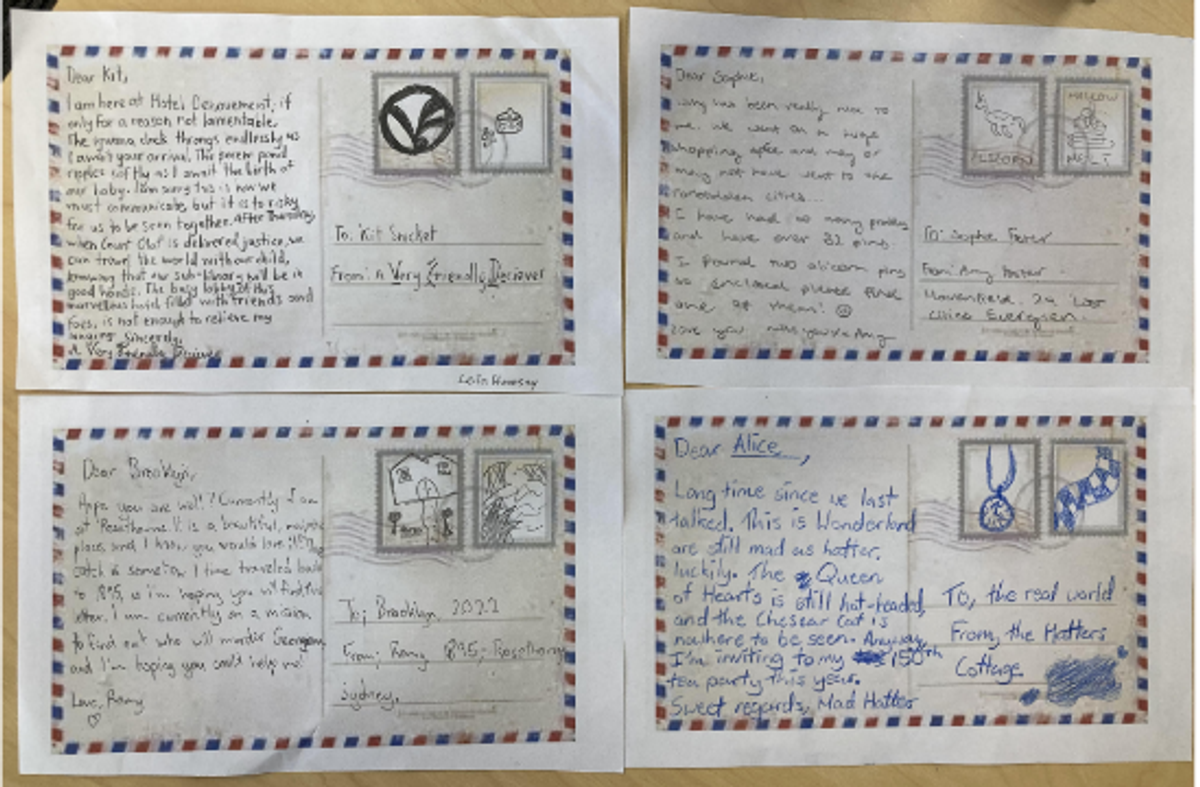 Dear Kit,
I am here at Hotel Denouement, if
only for a reason not lamentable.
The clock throngs endlessly as
I await your arrival. The pond
ripples softly as I await the birth of
our baby. I'm sorry this is how we
must communicate, but it is to risky
for us to be seen together. After Thursday,
when Count Olaf is delivered justice, we
can travel the world with our child,
knowing that our sub-library will be in
good hands. The busy lobby of this
marvellous hotel filled with friends and
foes, is not enough to relieve my
Sincerely,
A Very Friendly Deciever
To: Kit Snicket
From: A Very Friendly Deciever
Dear Sophie,
has been really nice to
me. We went on a huge
shopping spree and may or
may not have went to the
forbidden cities...
I have had so many
and have over 32 pins.
I found two alicorn pins
so enclosed please find
one of them! ☺
Love you! miss you x Amy
ALICORN
MALLOW
MELT
To: Sophie Foster
From: Amy Foster
Havenfield, Lost
Cities Evergreen.
Dear Brooklyn,
Hope you are well! Currently I am
at Rosethorne. It is a beautiful,
place, and I know you would love it! The
catch is somehow I time traveled back
to 1895, so I'm hoping you will find this
letter. I am currently on a mission
to find out who will murder
and I'm hoping you could help me!
Love, Romy
♡
To; Brooklyn, 2022
From; Romy 1895,
Sydney,
Dear Alice,
Long time since we last
talked. This is Wonderland
are still mad as hatter,
luckily. The Queen
of Hearts is still hot-headed,
and the Chesear Cat is
nowhere to be seen. Anyway,
I'm inviting to my 150th
tea party this year.
Sweet regards, Mad Hatter
To, the real world
From, the Hatters
Cottage